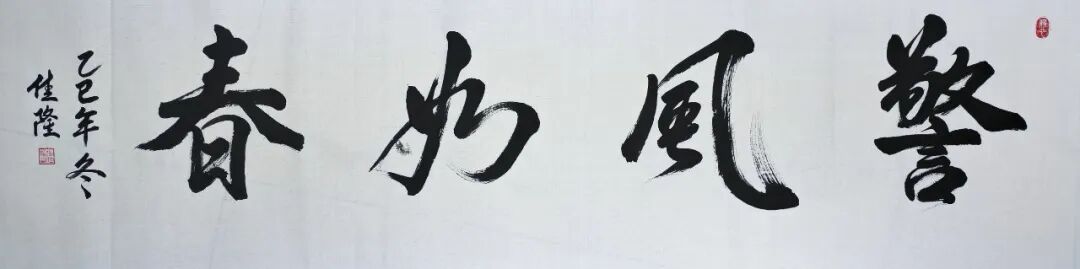 警风如春
乙巳年冬
佳隆